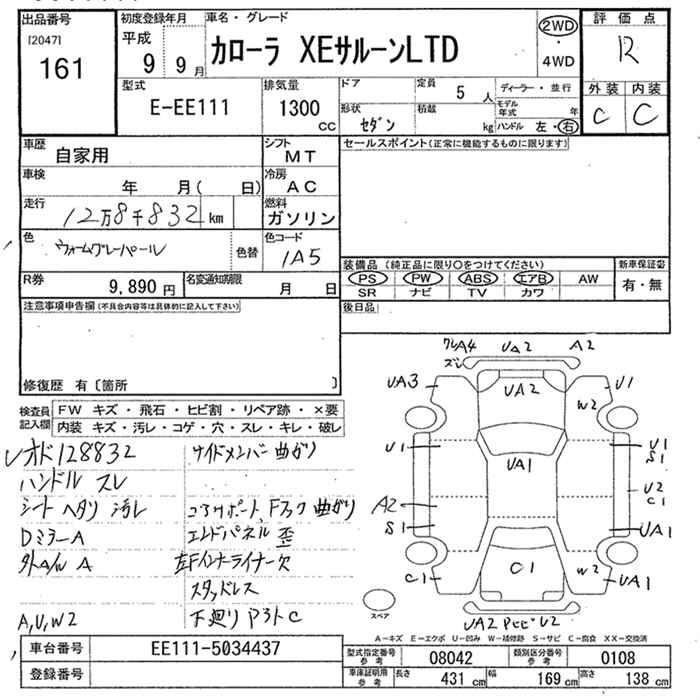 出品番号
[2047]
161
初度登録年月
平成
9 9月
車名・グレード
カローラ XEサルーンLTD
2WD
・
4WD
評価点
R
型式
E-EE111
排気量
1300
CC
ドア
形状
セダン
定員
5 人
積載
kg
ディーラー・並行
モデル年式 年
ハンドル 左・右
外装 内装
C C
車歴
自家用
シフト
MT
車検
年 月( 日)
冷房
AC
走行
12万8千832 km
燃料
ガソリン
色
ウォームグレーパール
色替
色コード
1A5
R券
9,890 円
名変通知期限
月 日
セールスポイント(正常に機能するものに限ります)
装備品(純正品に限り〇をつけてください)
新車保証書
PS PW ABS エアB AW
SR ナビ TV カワ
有・無
後日品
注意事項申告欄(不具合内容等は具体的に記入して下さい)
修復歴 有〔箇所 〕
検査員記入欄
FW キズ・飛石・ヒビ割・リペア跡・×要
内装 キズ・汚レ・コゲ・穴・スレ・キレ・破レ
レオド128832
サイドメンバー曲がり
ハンドル スレ
シート ヘタリ 汚レ
コアサポート Fフック 曲がり
DミラーA
エンドパネル 歪
外A/W A
左Fインナーライナー欠
スタッドレス
A,U,W2
下廻り アラト C
ワレA4 UA2 A2
ズレ
UA3 UA2 U1
W2
U1 UA1 U1
S1
U2
C1
A2
S1 UA1
C1 C1 W2 UA1
スペア
UA2 U2
A-キズ E-エクボ U-凹み W-補修跡 S-サビ C-腐食 XX-交換済
車台番号
EE111-5034437
登録番号
型式指定番号
参考
08042
類別区分番号
参考
0108
車庫証明用
参考
長さ 431 cm
幅 169 cm
高さ 138 cm